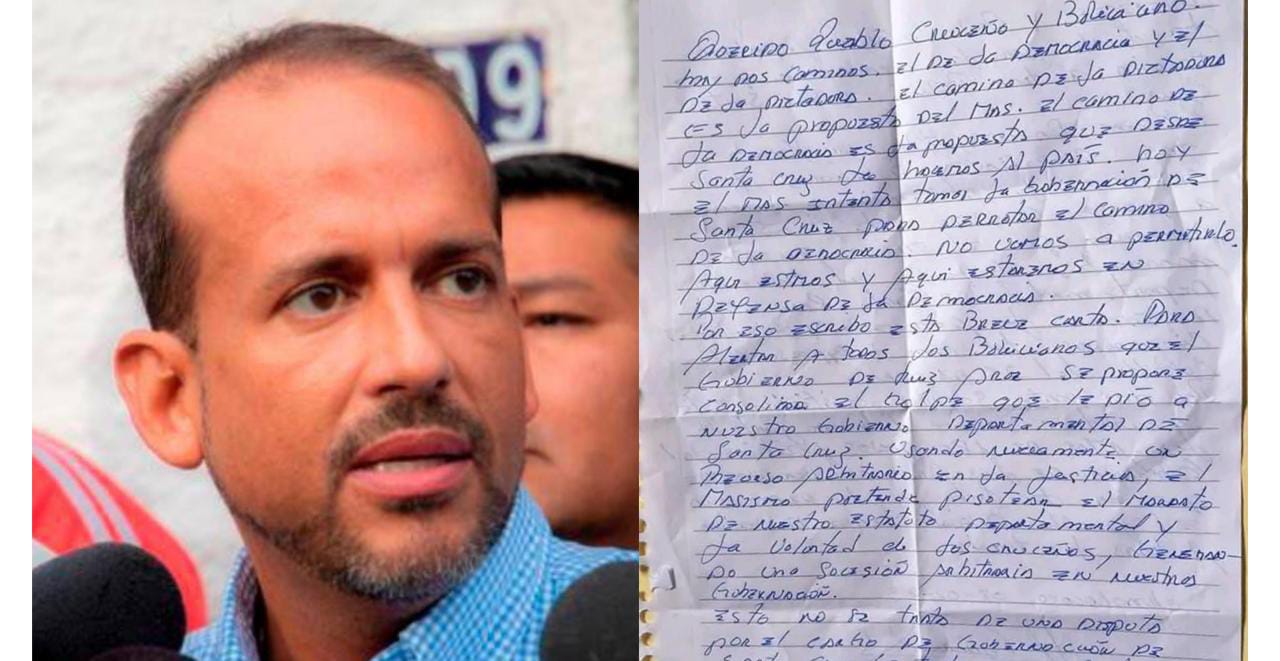 09
Querido Pueblo Cruceño y Boliviano.
hay dos caminos. El de la Democracia y el
de la Dictadura. el camino de la Dictadura
es la propuesta del Mas. el camino de
la Democracia es la propuesta que desde
Santa Cruz le hacemos al país. hoy
el Mas intenta tomar la Gobernación de
Santa Cruz para derrotar el camino
de la democracia. No vamos a permitirlo.
Aqui estmos y Aqui estaremos en
Defensa de la Democracia.
Por eso escribo esta Breve carta. Para
Alertar a todos los Bolivianos que el
Gobierno de Luis Arce se propone
consolidar el Golpe que le dio a
nuestro Gobierno Departamental de
Santa Cruz. Usando nuevamente un
Recurso Arbitrario en la Justicia, el
Masismo pretende pisotear el Mandato
de nuestro Estatuto Departamental y
la Voluntad de los cruceños, Generan-
do una Sucesión Arbitraria en nuestra
Gobernación.
Esto no se trata de una disputa
por el cargo de Gobernación de